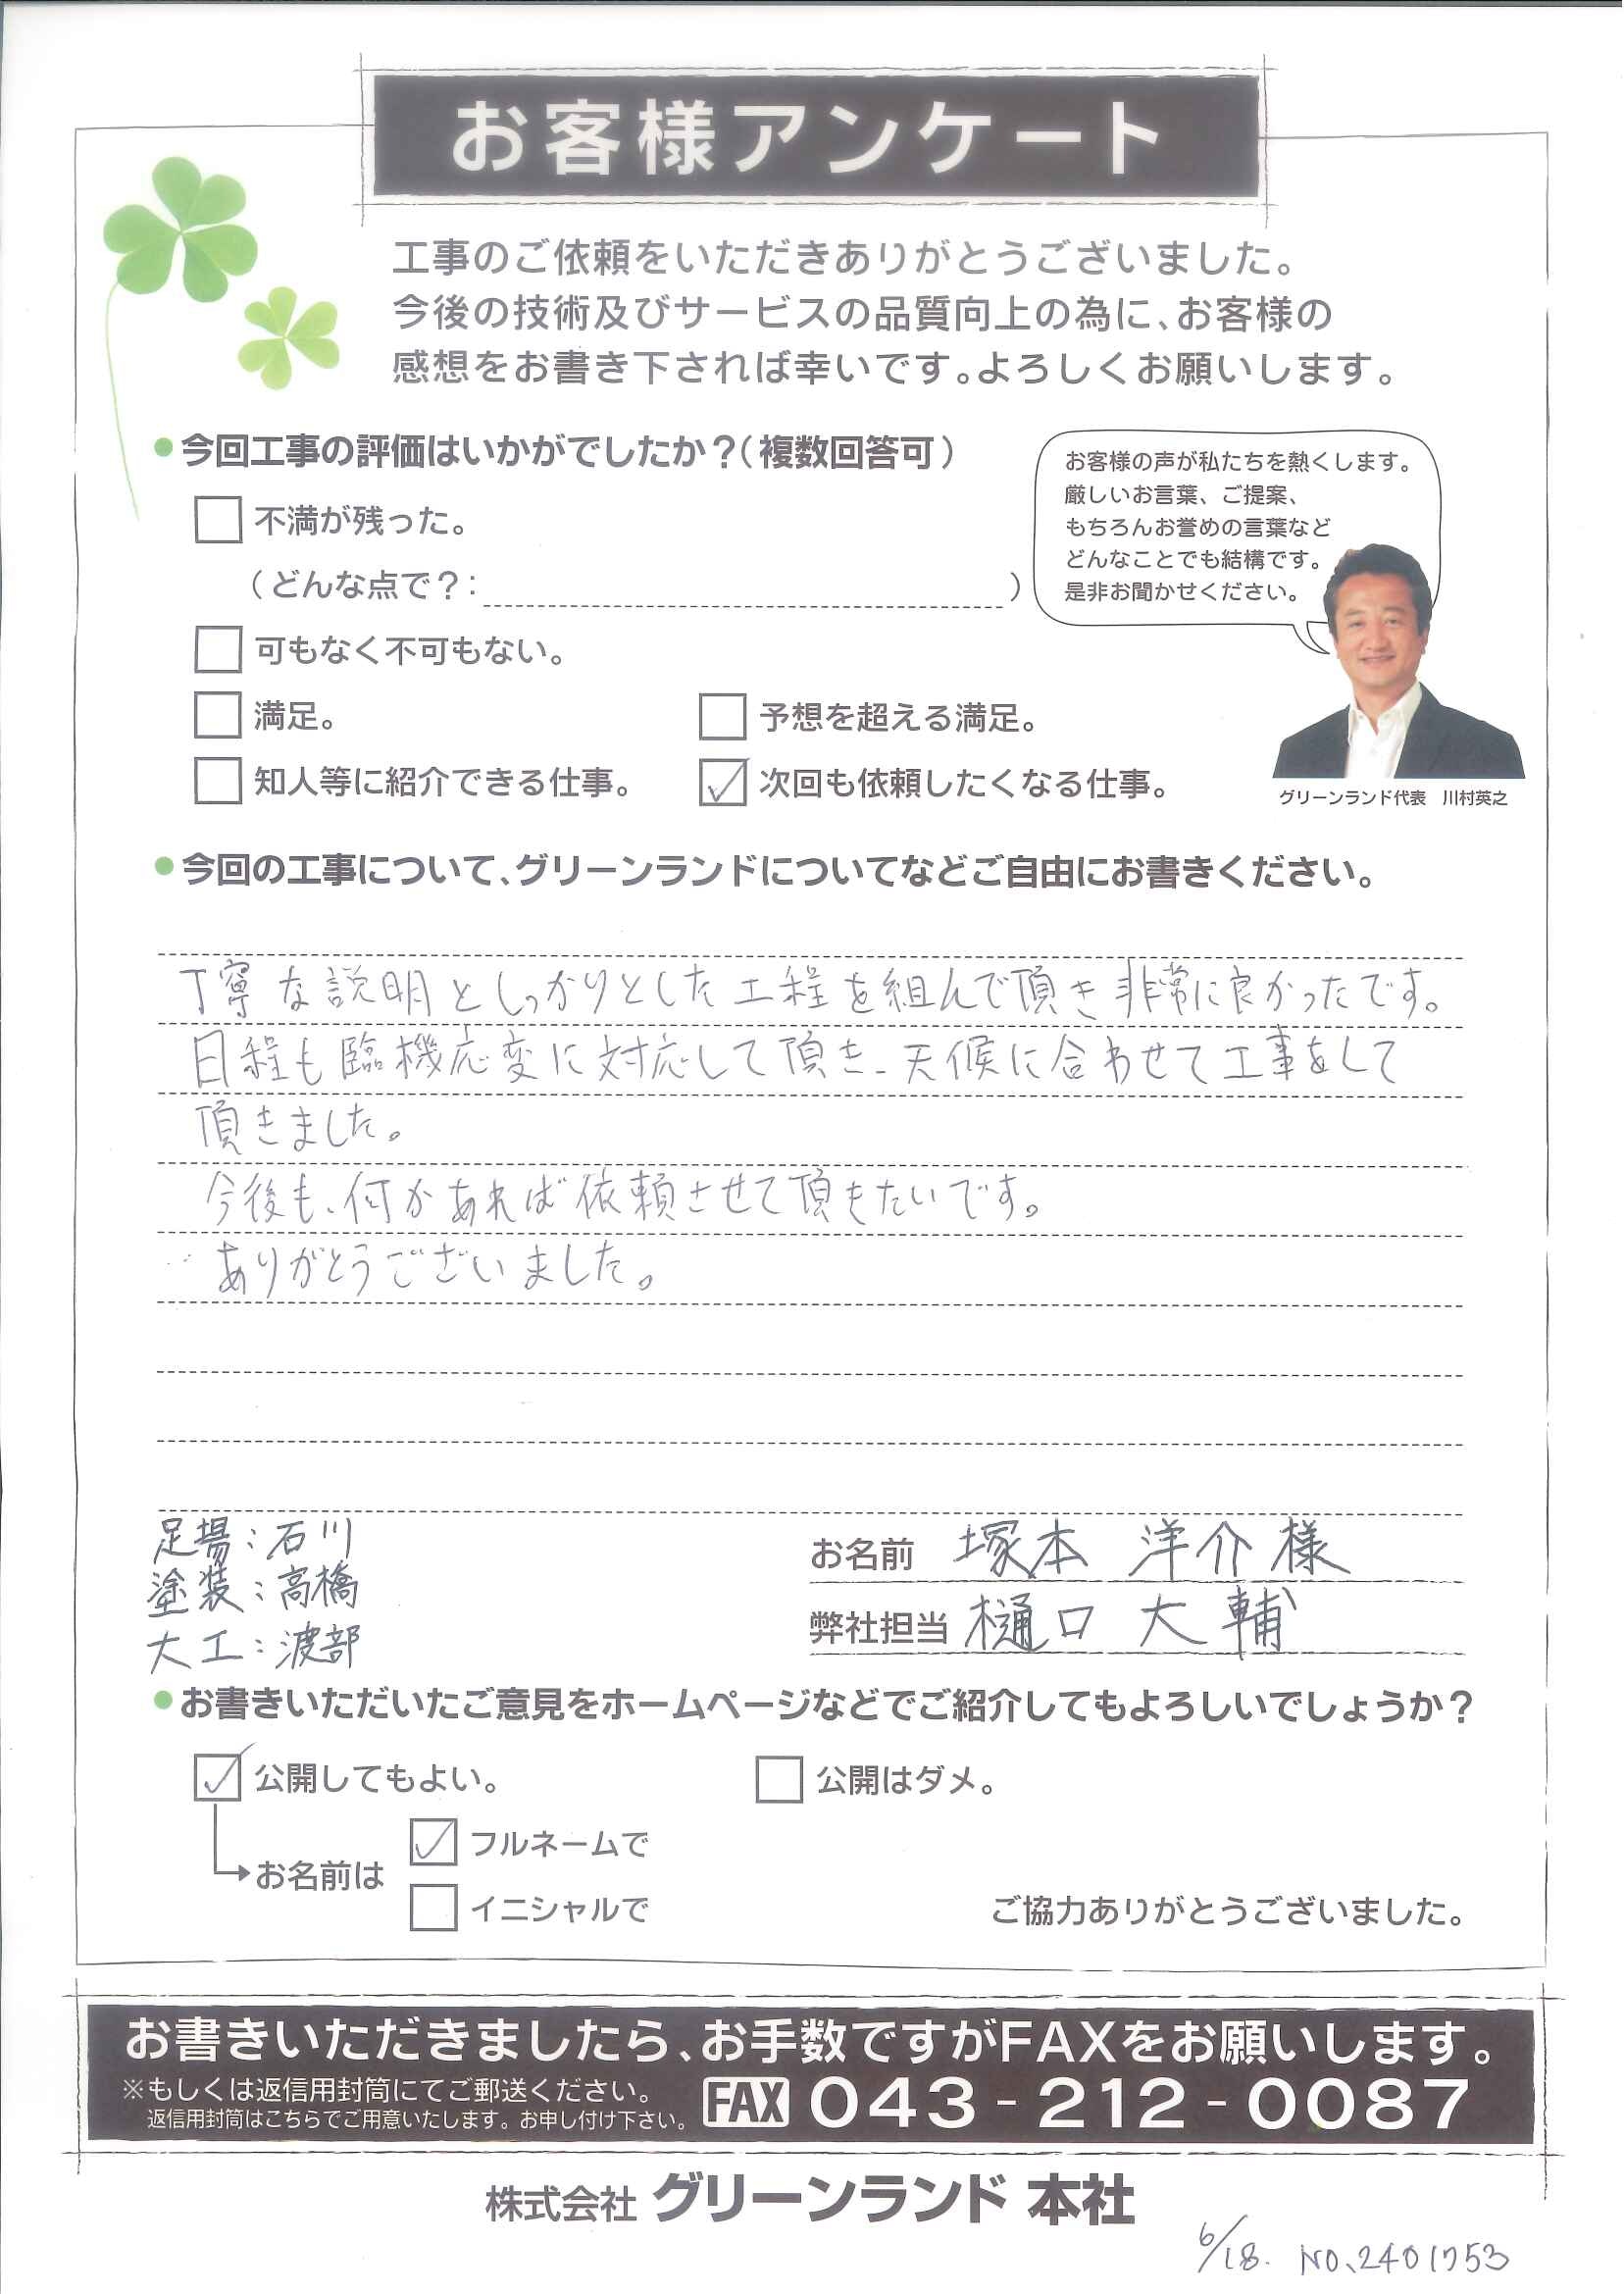 お客様アンケート
工事のご依頼をいただきありがとうございました。
今後の技術及びサービスの品質向上の為に、お客様の
感想をお書き下されば幸いです。よろしくお願いします。
●今回工事の評価はいかがでしたか？(複数回答可)
お客様の声が私たちを熱くします。
厳しいお言葉、ご提案、
もちろんお誉めの言葉など
どんなことでも結構です。
是非お聞かせください。
グリーンランド代表　川村英之
□ 不満が残った。
(どんな点で？:　　　　)
□ 可もなく不可もない。
□ 満足。　□ 予想を超える満足。
□ 知人等に紹介できる仕事。　☑ 次回も依頼したくなる仕事。
●今回の工事について、グリーンランドについてなどご自由にお書きください。
丁寧な説明としっかりとした工程を組んで頂き非常に良かったです。
日程も臨機応変に対応して頂き、天候に合わせて工事をして
頂きました。
今後も、何かあれば依頼させて頂きたいです。
ありがとうございました。
足場：石川
塗装：高橋
大工：渡部
お名前 塚本 洋介様
弊社担当 樋口 大輔
●お書きいただいたご意見をホームページなどでご紹介してもよろしいでしょうか？
☑ 公開してもよい。　□ 公開はダメ。
お名前は
☑ フルネームで
□ イニシャルで
ご協力ありがとうございました。
お書きいただきましたら、お手数ですがFAXをお願いします。
※もしくは返信用封筒にてご郵送ください。
返信用封筒はこちらでご用意いたします。お申し付け下さい。
FAX 043-212-0087
株式会社 グリーンランド 本社
6/18. NO、2401753